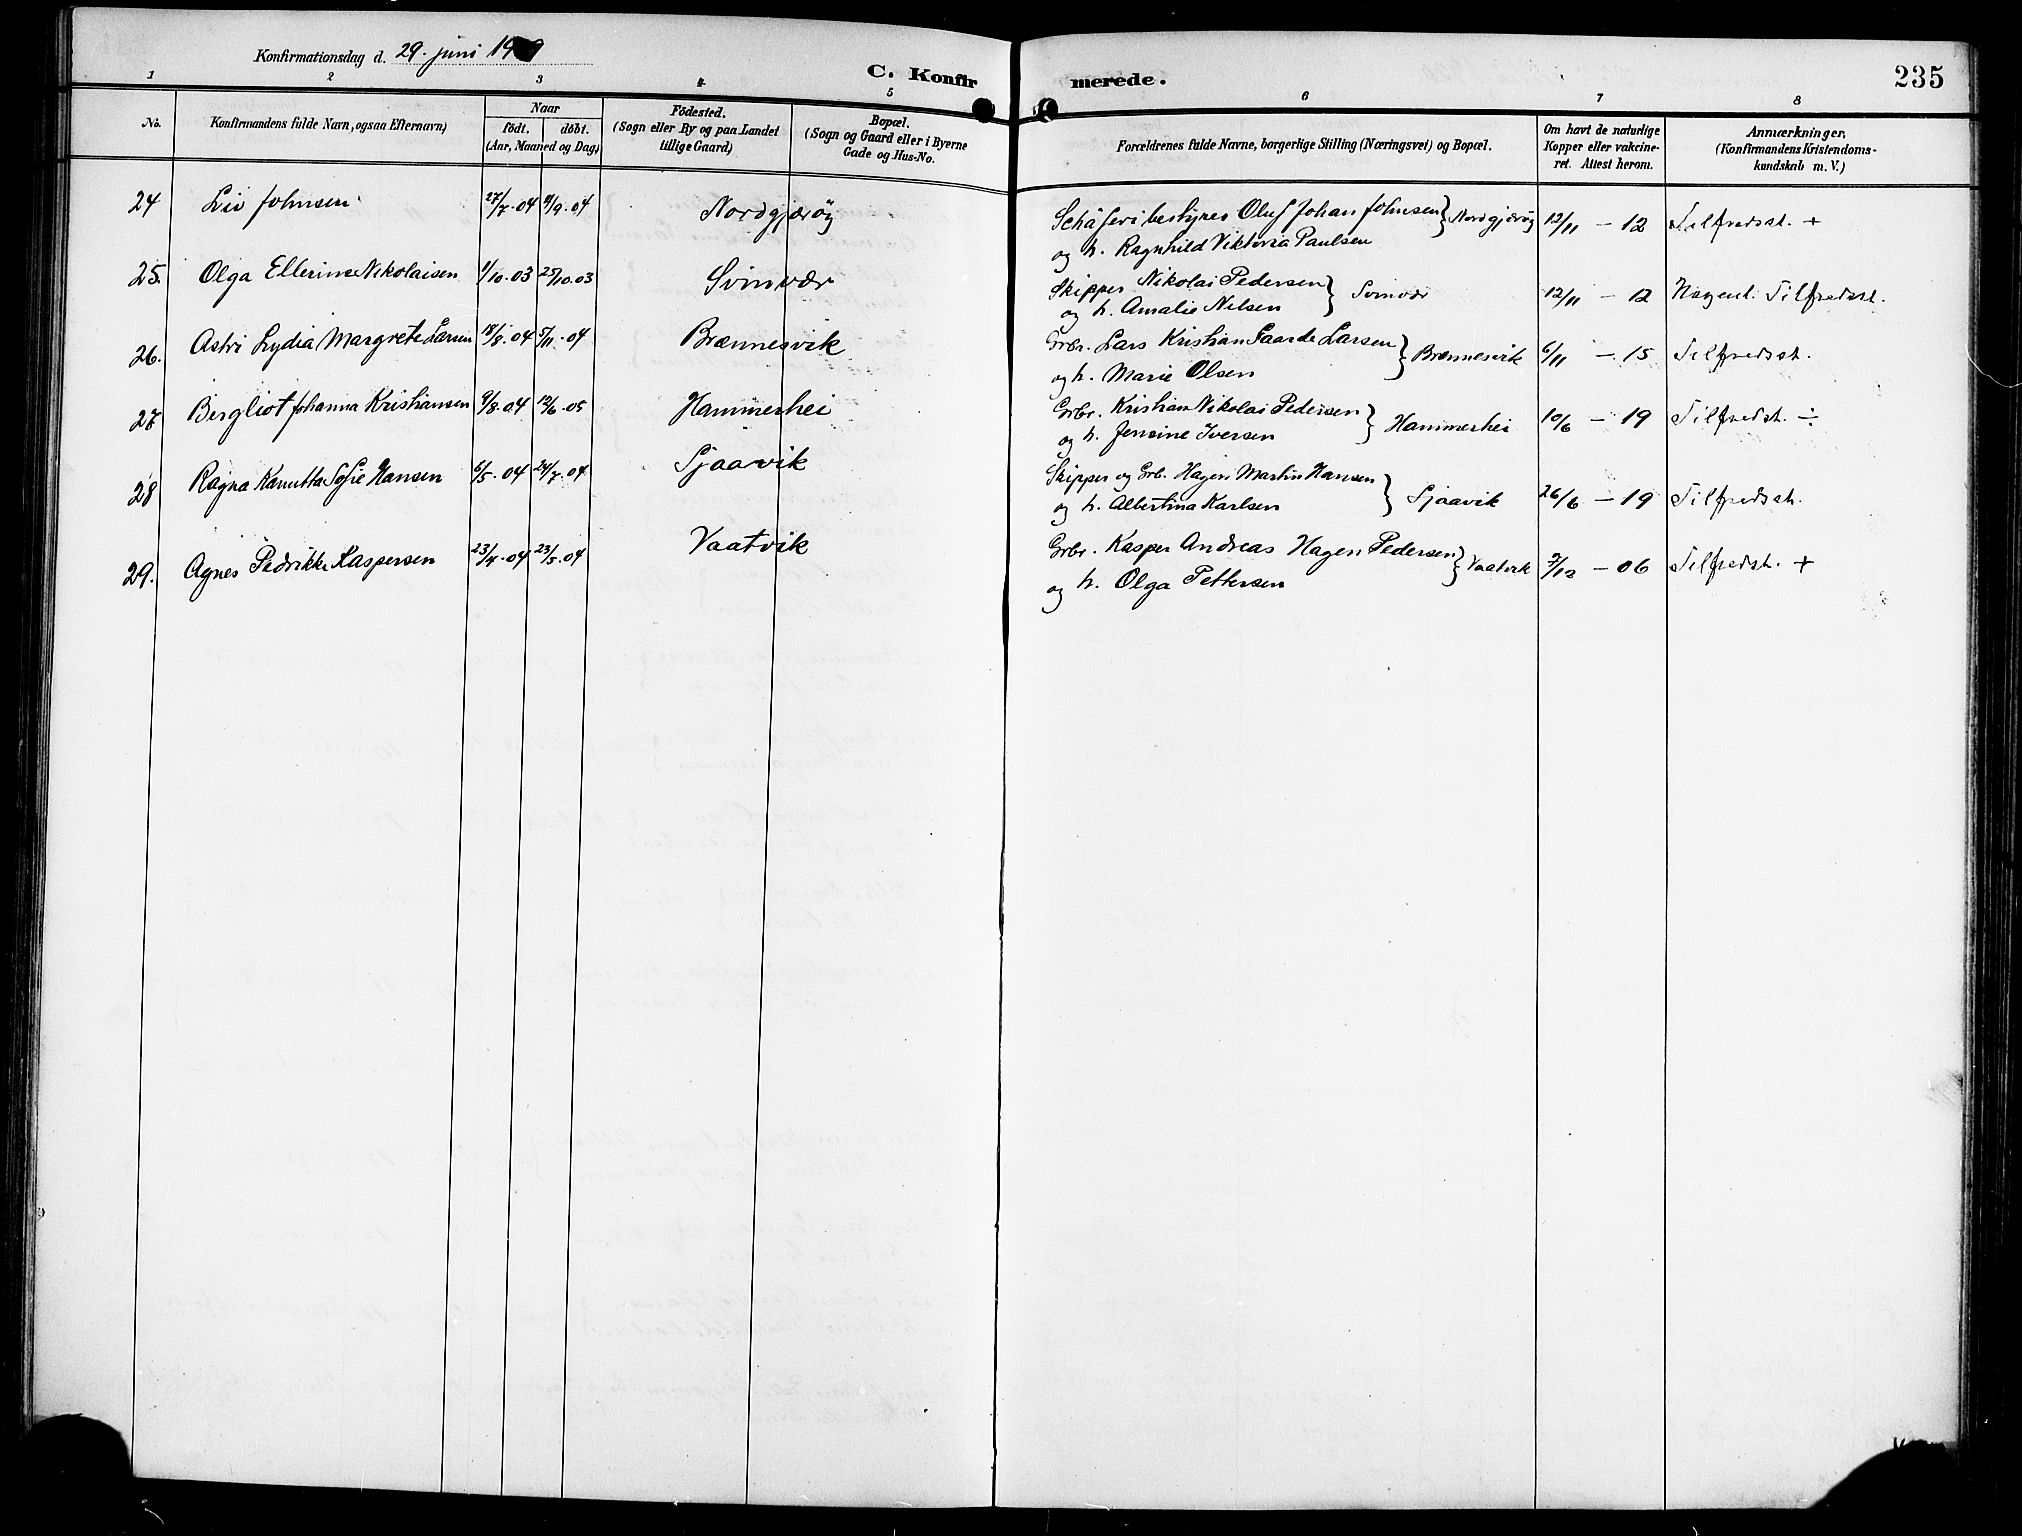 Konfirmationsdag d. 29. juni 19
C. Konfirmerede.
235
1 2 3 4 5 6 7 8
No.
Konfirmandens fulde Navn, ogsaa Efternavn)
Naar
födt. döbt.
(Aar, Maaned og Dag)
Födested.
(Sogn eller By og paa Landet
tillige Gaard)
Bopæl.
(Sogn og Gaard eller i Byerne
Gade og Hus-No.
Forældrenes fulde Navne, borgerlige Stilling (Næringsvei) og Bopæl.
Om havt de naturlige
Kopper eller vakcine-
ret. Attest herom.
Anmærkninger,
(Konfirmandens Kristendoms-
kundskab m. V.)
24 Liv Johnsen 27/7.04 /9.04 Nordgjærøy Schäferibestyrer Oluf Johan Johnsen } Nordgjærøy 12/11 - 12 Tilfredsst. +
og h. Ragnhild Viktoria Paulsen
25. Olga Ellerine Nikolaisen 1/10.03 25/10.03 Svinvær Skipper Nikolai Pedersen } Svinvær 12/11 - 12 Nogenl. Tilfredsst.
og h. Amalie Nilsen
26. Astri Lydia Margrete Larsen 18/8.04 5/11.04 Brænnesvik Grbr. Lars Kristian Gaarde Larsen } Brænnesvik 6/11 - 15 Tilfredsst.
og h. Marie Olsen
27 Bergliot Johanna Kristiansen 9/8.04 12/6.05 Hammerhei Grbr. Kristian Nikolai Pedersen } Hammerhei 10/6 - 19 Tilfredsst. ÷
og h. Jensine Iversen
28 Ragna Kanutta Sofie Hansen 6/5.04 24/7.04 Sjaavik Skipper og Grb. Hagen Martin Hansen } Sjaavik 26/6 - 19 Tilfredsst.
og h. Albertina Karlsen
29. Agnes Pedrikke Kaspersen 23/4.04 23/5.04 Vaatvik Grbr. Kasper Andreas Hagen Pedersen } Vaatvik 7/12 - 06 Tilfredsst. +
og h. Olga Pettersen